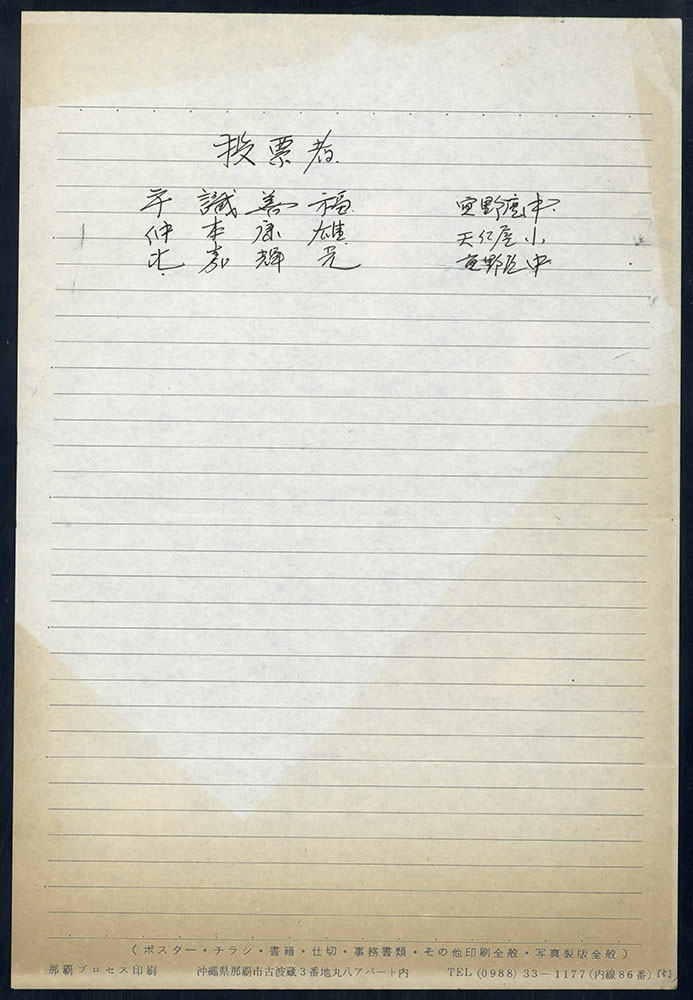 投票者
平識善福 宜野座中
仲本康雄 天仁屋小
比嘉輝光 宜野座中
(ポスター・チラシ・書籍・仕切・事務書類・その他印刷全般・写真製版全般)
那覇プロセス印刷 沖縄県那覇市古波蔵3番地丸八アパート内 TEL (0988) 33-1177 (内線86番)